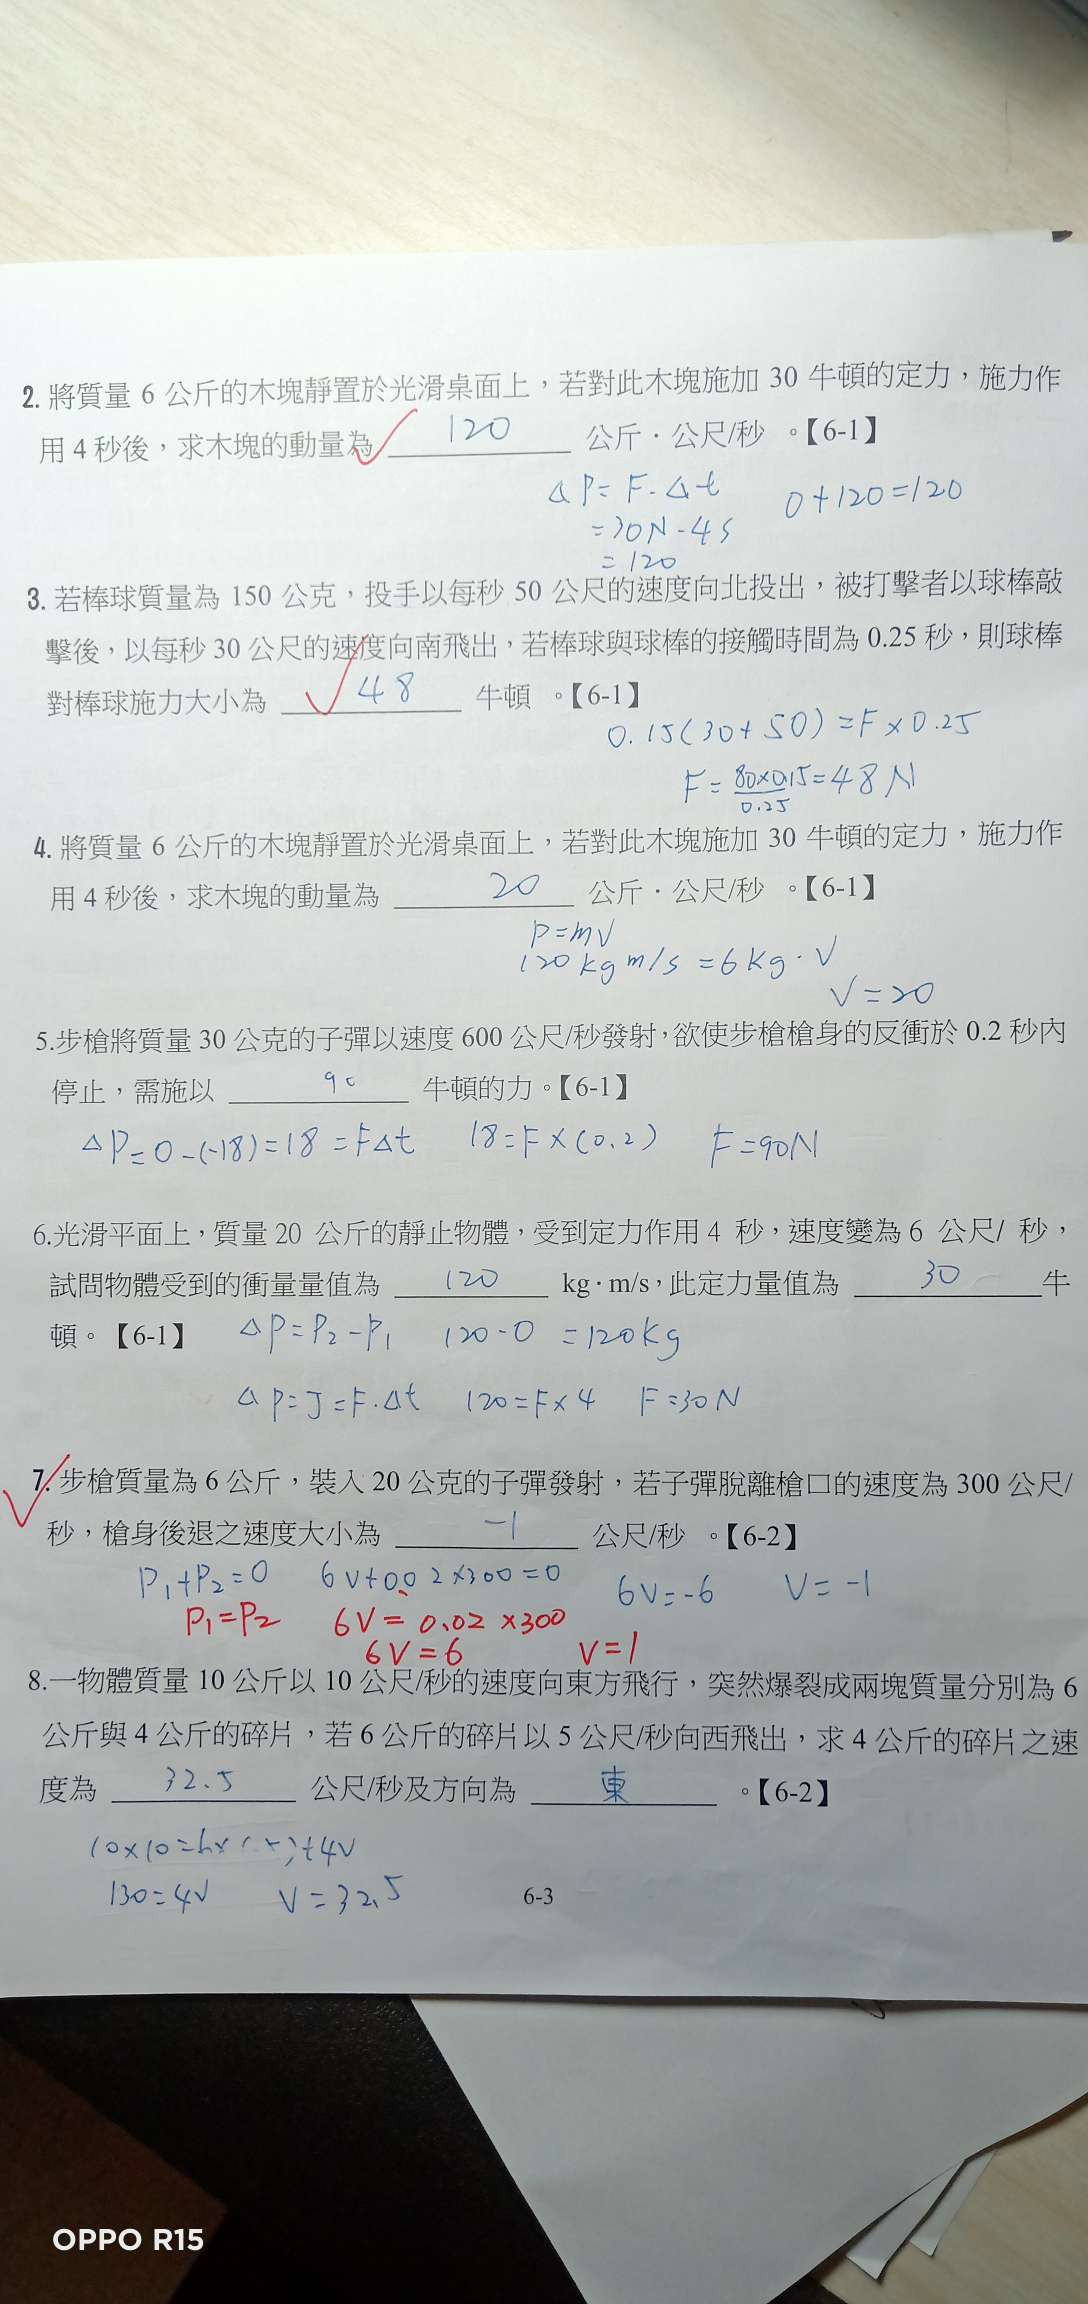 2. 將質量 6 公斤的木塊靜置於光滑桌面上，若對此木塊施加 30 牛頓的定力，施力作
用 4 秒後，求木塊的動量為 120 公斤．公尺/秒 。【6-1】
ΔP= F·Δt 0+120=120
=30N-4s
=120
3. 若棒球質量為 150 公克，投手以每秒 50 公尺的速度向北投出，被打擊者以球棒敲
擊後，以每秒 30 公尺的速度向南飛出，若棒球與球棒的接觸時間為 0.25 秒，則球棒
對棒球施力大小為 48 牛頓 。【6-1】
0.15(30+50)=F×0.25
F=80×0.15/0.25=48N
4. 將質量 6 公斤的木塊靜置於光滑桌面上，若對此木塊施加 30 牛頓的定力，施力作
用 4 秒後，求木塊的動量為 20 公斤．公尺/秒 。【6-1】
P=mV
120kg m/s =6kg·V
V=20
5.步槍將質量 30 公克的子彈以速度 600 公尺/秒發射，欲使步槍槍身的反衝於 0.2 秒內
停止，需施以 90 牛頓的力。【6-1】
ΔP=0-(-18)=18=FΔt 18=F×(0.2) F=90N
6.光滑平面上，質量 20 公斤的靜止物體，受到定力作用 4 秒，速度變為 6 公尺/ 秒，
試問物體受到的衝量量值為 120 kg·m/s，此定力量值為 30 牛
頓。【6-1】 ΔP=P2-P1 120-0 =120kg
ΔP=J=F·Δt 120=F×4 F=30N
7. 步槍質量為 6 公斤，裝入 20 公克的子彈發射，若子彈脫離槍口的速度為 300 公尺/
秒，槍身後退之速度大小為 -1 公尺/秒 。【6-2】
P1+P2=0 6V+0.02×300=0 6V=-6 V=-1
P1=P2 6V=0.02×300
6V=6 V=1
8.一物體質量 10 公斤以 10 公尺/秒的速度向東方飛行，突然爆裂成兩塊質量分別為 6
公斤與 4 公斤的碎片，若 6 公斤的碎片以 5 公尺/秒向西飛出，求 4 公斤的碎片之速
度為 32.5 公尺/秒及方向為 東 。【6-2】
10×10= +4V
130=4V V=32.5
6-3
OPPO R15